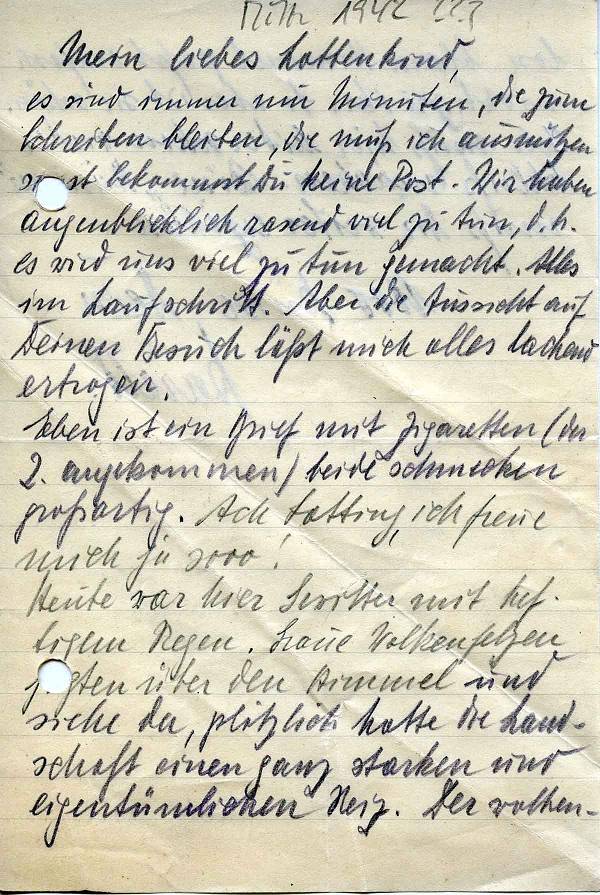 1942
Mein liebes Lottenkind,
es sind immer nur Minuten, die zum
Schreiben bleiben, die muß ich ausnützen
sonst bekommst Du keine Post. Wir haben
augenblicklich rasend viel zu tun, d. h.
es wird uns viel zu tun gemacht. Alles
im Laufschritt. Aber die Aussicht auf
Deinen Besuch läßt mich alles lachend
ertragen.
Eben ist ein Brief mit Zigaretten (der
2. angekommen) beide schmecken
großartig. Ach Lotting, ich freue
mich ja sooo!
Heute war hier Gewitter mit hef-
tigem Regen. Graue Wolkenfetzen
jagten über den Himmel und
siehe da, plötzlich hatte die Land-
schaft einen ganz starken und
eigentümlichen Reiz. Der wolken-